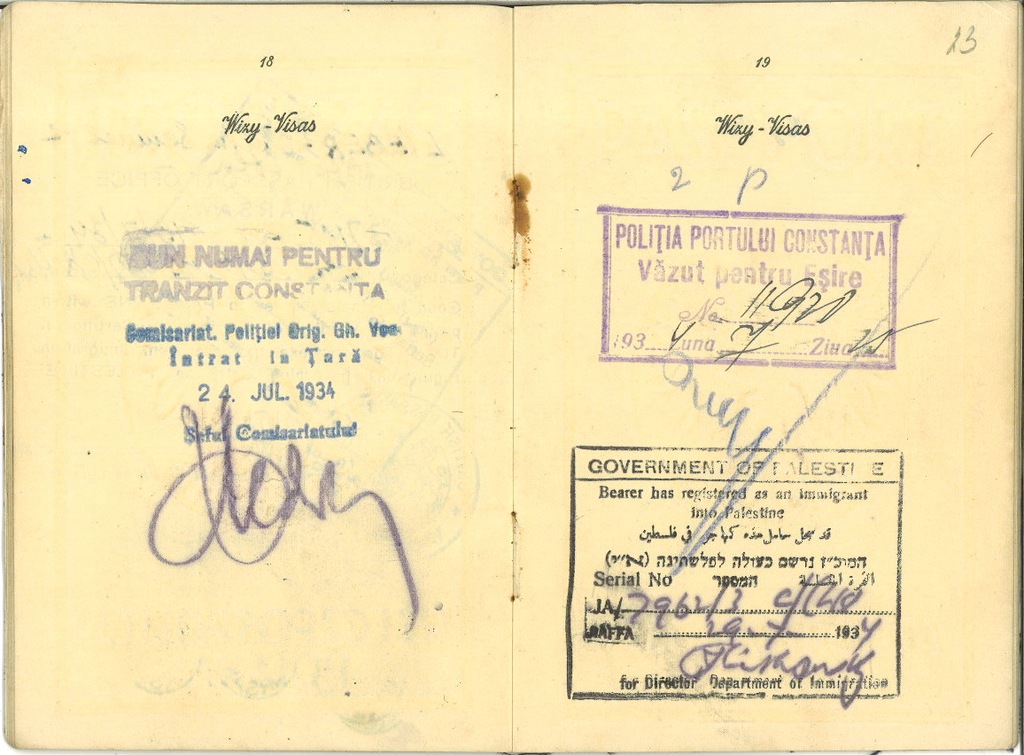 18
Wizy - Visas
BUN NUMAI PENTRU
TRANZIT CONSTANTA
Comisariat. Poliţiei Orig. Gh. Vod
Intrat în Ţară
24. JUL. 1934
Şeful Comisariatului
23
19
Wizy - Visas
2 P
POLIŢIA PORTULUI CONSTANŢA
Văzut pentru Eşire
No
193 4 Luna 7 Ziua 25
GOVERNMENT OF PALESTINE
Bearer has registered as an immigrant
into Palestine
قد سجل حامل هذه كمهاجر في فلسطين
המוכ"ז נרשם כעולה לפלשתינה (א"י)
Serial No המספר
JA/
JAFFA 29-7- 1934
for Director Department of Immigration